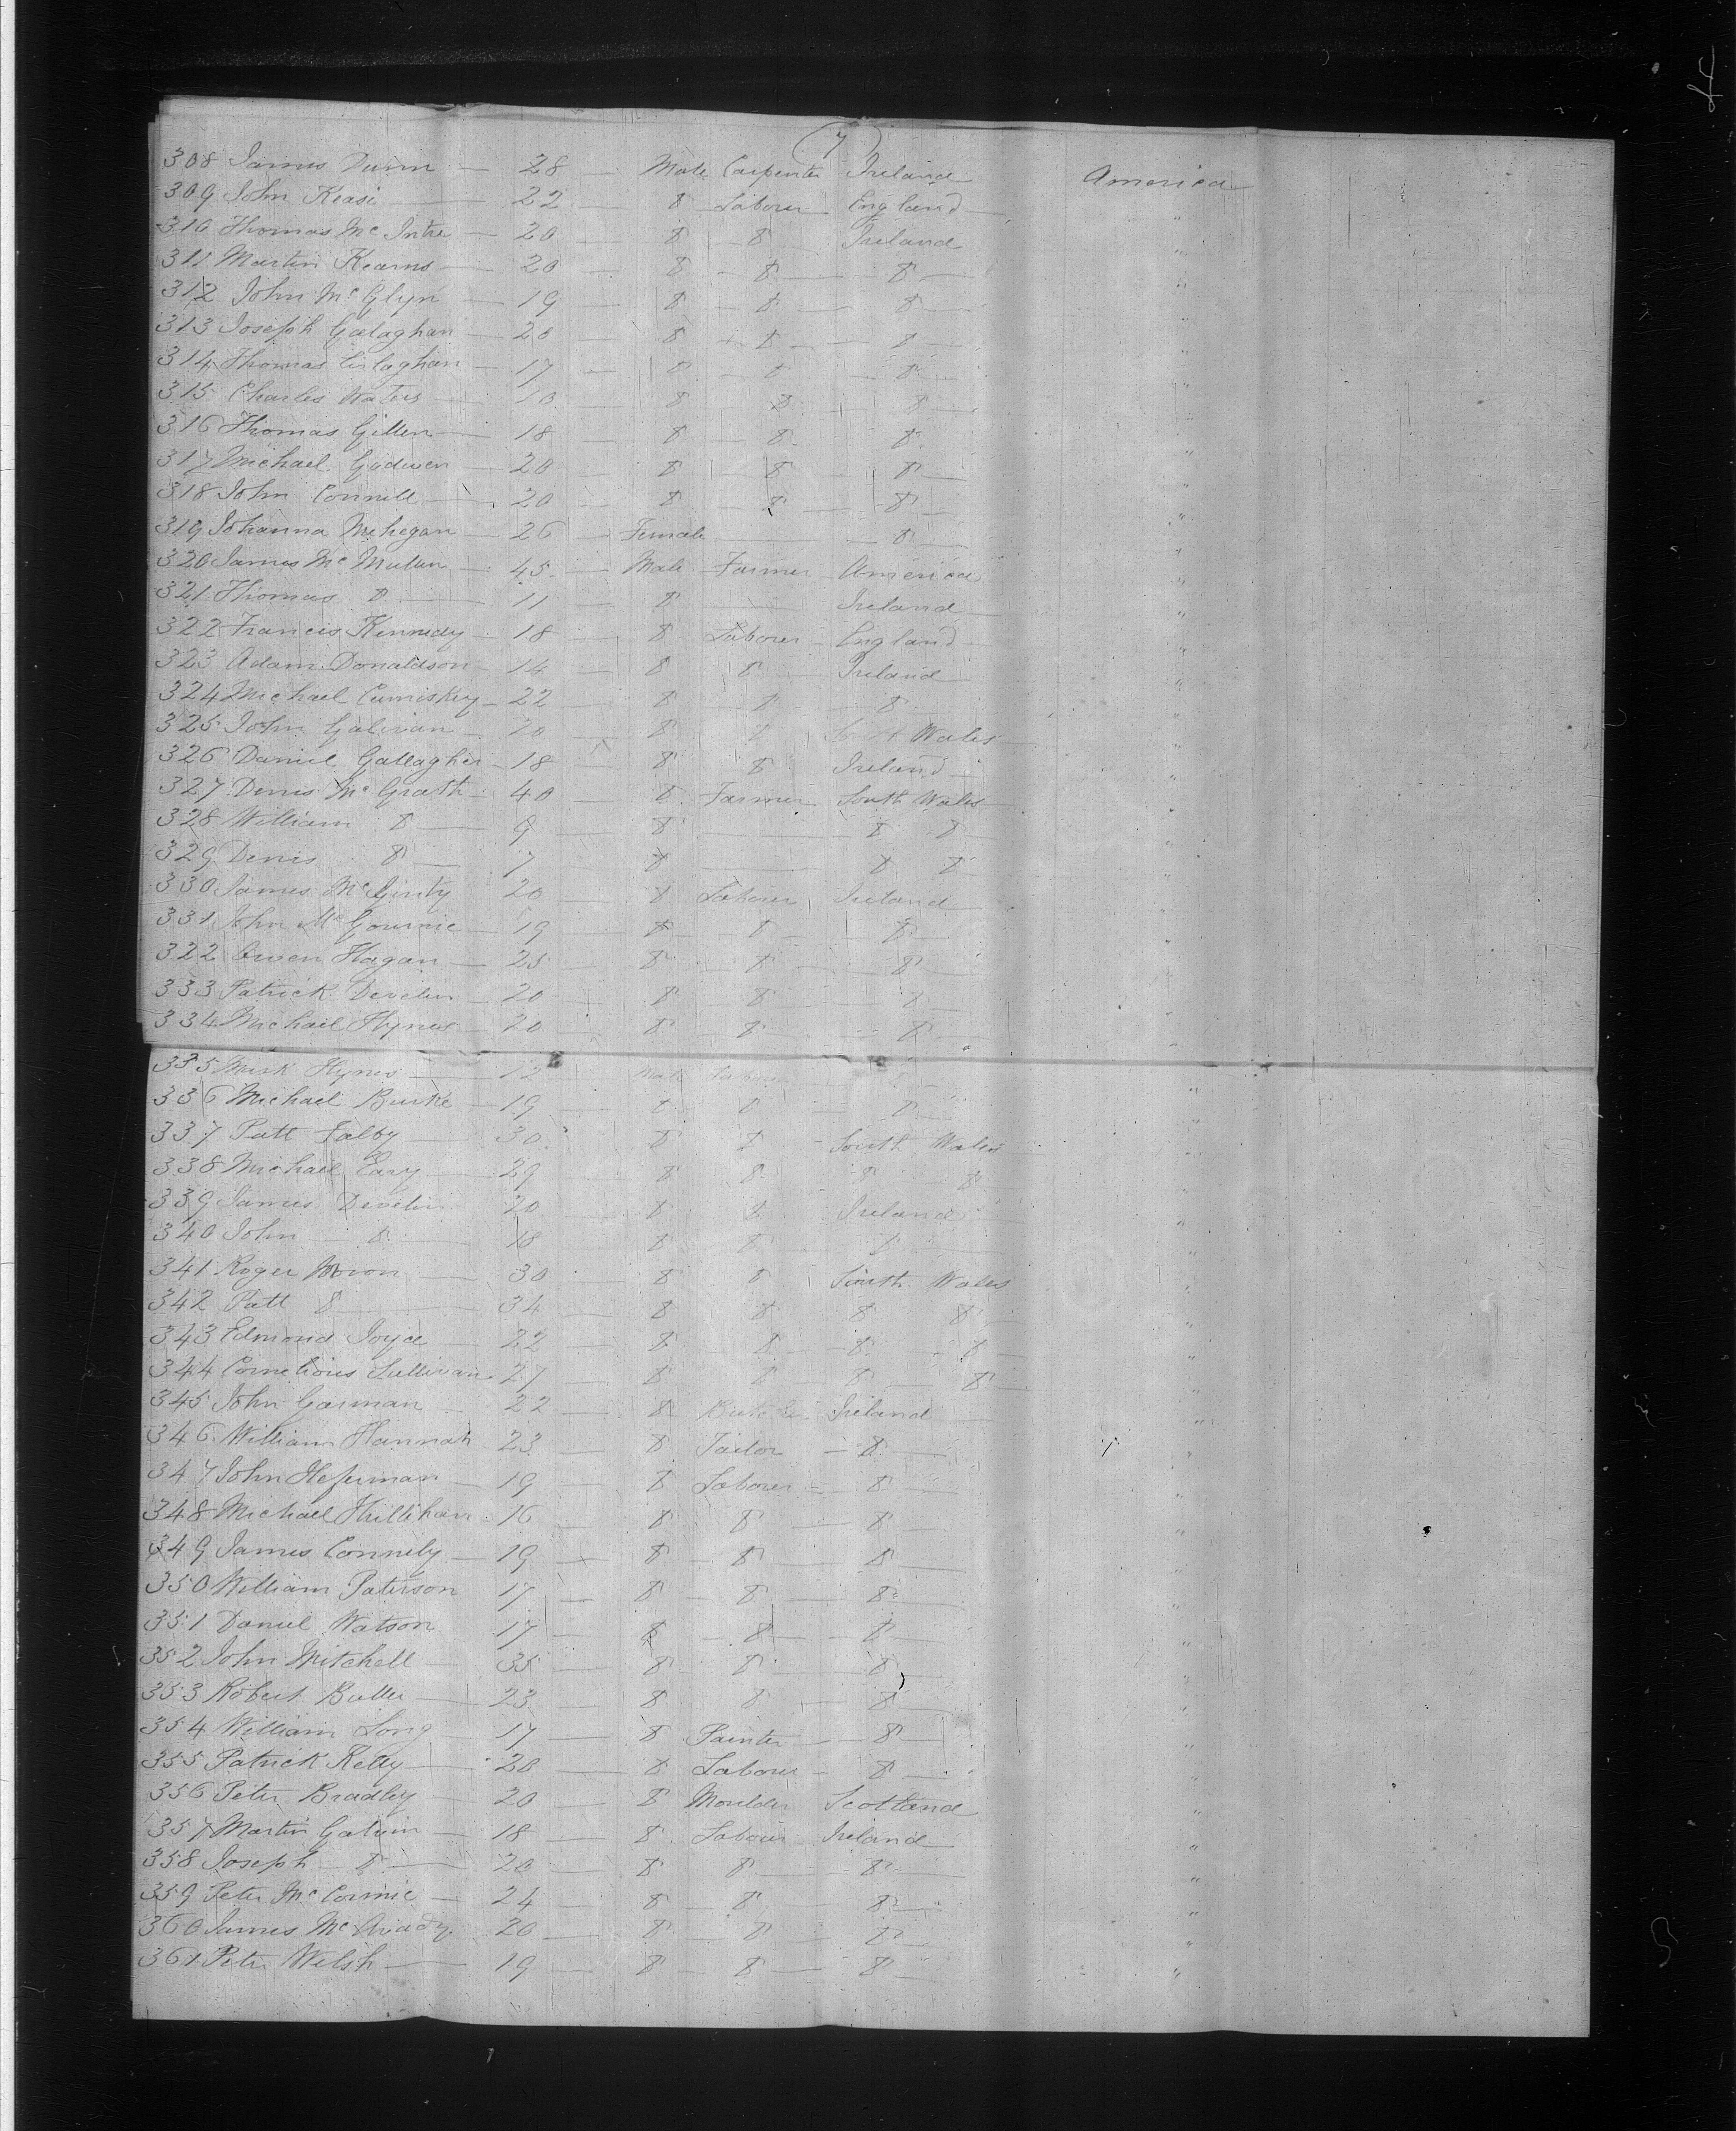 7
308 James Dunn — 28 — Male Carpenter Ireland America
309 John Keasi — 22 — 8 Laborer England "
310 Thomas Mc Intre — 20 — 8 — 8 Ireland "
311 Martin Kearns — 20 — 8 — 8 — 8 "
312 John McGlyn — 19 — 8 — 8 — 8 "
313 Joseph Galaghan — 20 — 8 8 — 8 "
314 Thomas — 17 — 8 — 8 — 8 "
315 Charles Waters — 8 — 8 — 8 "
316 Thomas Gillen — 18 — 8 — 8 — 8 "
317 Michael Godwen — 20 — 8 — 8 — 8 "
318 John Connell — 20 — 8 — 8 — 8 "
319 Johanna Mehegan — 26 — Female — 8 "
320 James Mc Mullen — 45 — Male Farmer America "
321 Thomas 8 — 11 — 8 — Ireland "
322 Francis Kennedy — 18 — 8 Laborer England "
323 Adam Donaldson — 14 — 8 8 Ireland "
324 Michael Cumiskey — 22 — 8 8 8 "
325 John Galivan — 20 — 8 8 South Wales "
326 Daniel Gallagher — 18 — 8 8 Ireland "
327 Denis McGrath — 40 — 8 Farmer South Wales "
328 William 8 — 9 — 8 — 8 8 "
329 Denis 8 — 7 — 8 — 8 8 "
330 James McGinty — 20 — 8 Laborer Ireland "
331 John McGournie — 19 — 8 8 — 8 "
322 Owen Hagan — 25 — 8 8 — 8 "
333 Patrick Develin — 20 — 8 8 — 8 "
334 Michael Hynes — 20 — 8 8 — 8 "
335 Hynes — 12 Male Labour
336 Michael Burke — 19 — 8 8 — 8 "
337 Patt Falby — 30 8 8 South Wales "
338 Michael Eary — 29 8 8 8 8 "
339 James Develin 20 8 8 Ireland "
340 John — 8 — 18 8 8 8 "
341 Roger Moron — 30 — 8 8 South Wales "
342 Patt 8 — 34 — 8 8 8 8 "
343 Edmond Joyce — 22 — 8 8 8 8 "
344 Cornelious Sullivan 27 — 8 8 8 8 "
345 John Garman — 22 — 8 Butcher Ireland "
346 William Hannah 23 — 8 Tailor — 8 "
347 John Hefernan — 19 — 8 Laborer — 8 "
348 Michael Hillihan 16 — 8 8 — 8 "
349 James Connily — 19 — 8 — 8 — 8 "
350 William Paterson 17 — 8 — 8 — 8 "
351 Daniel Watson 17 — 8 — 8 — 8 "
352 John Mitchell — 35 — 8 8 8 "
353 Robert Butler — 23 — 8 8 — 8 "
354 William Long — 17 — 8 Painter — 8 "
355 Patrick Kelly — 28 — 8 Labour — 8 "
356 Peter Bradley — 20 — 8 Moulder Scotland "
357 Martin Galvin — 18 — 8 Labour Ireland "
358 Joseph 8 — 20 — 8 8 — 8 "
359 Peter McCormic — 24 — 8 — 8 — 8 "
360 James Mc 20 — 8 8 — 8 "
361 Peter Welsh — 19 — 8 — 8 — 8 "